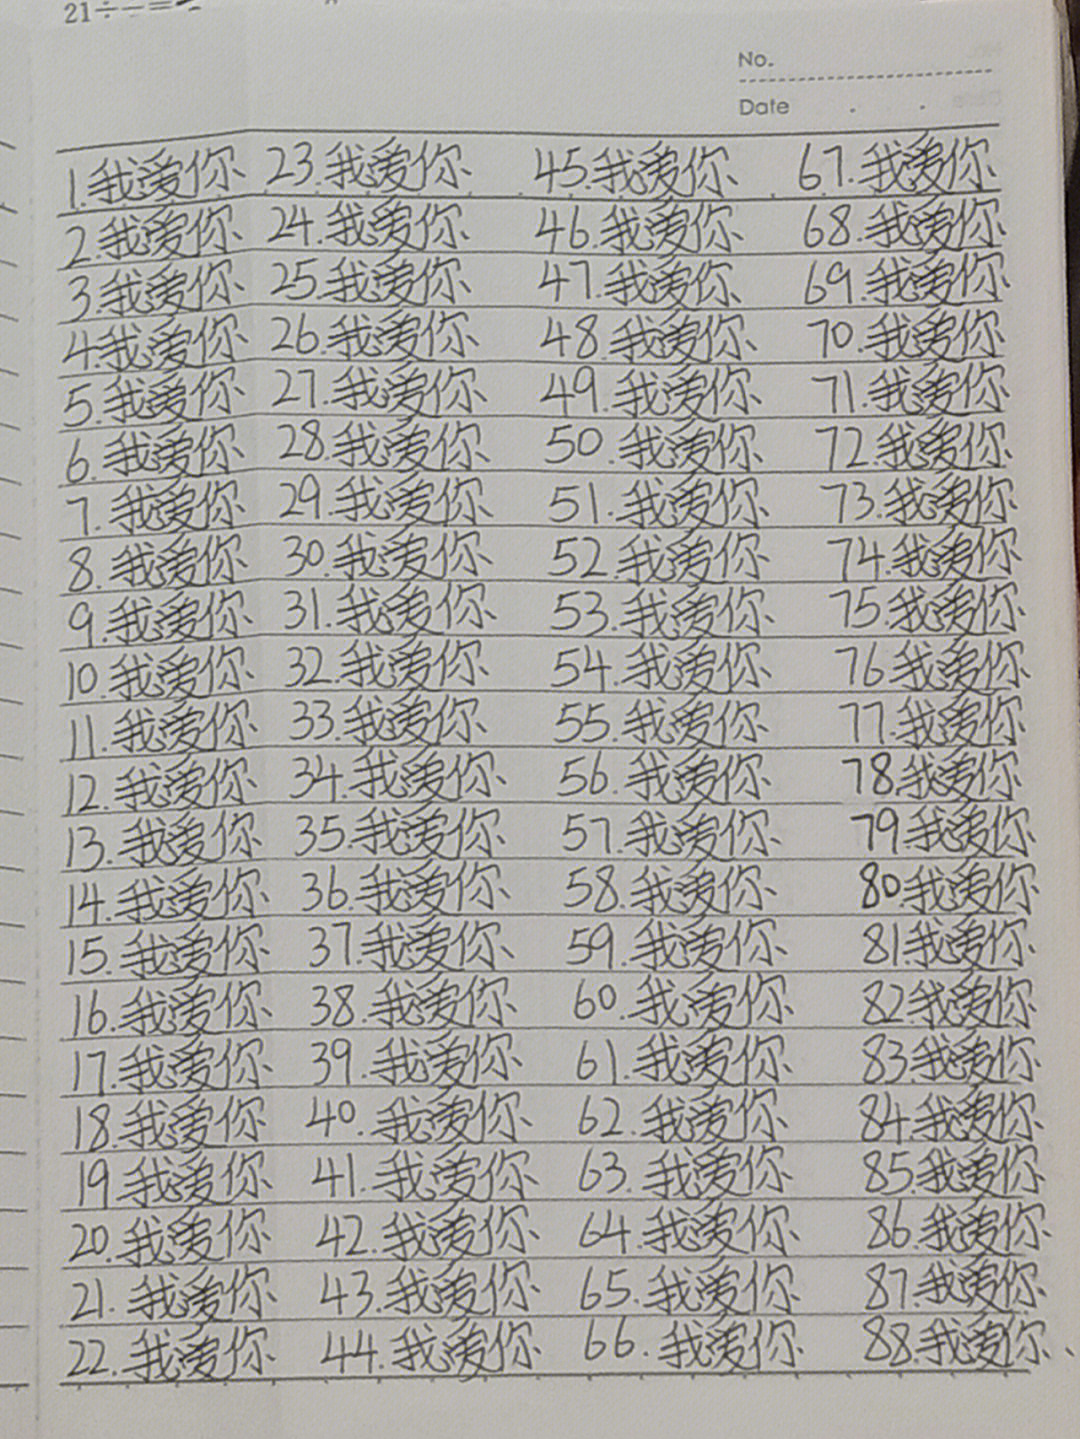 21÷
No.
Date
1.我爱你 23.我爱你 45.我爱你 67.我爱你
2.我爱你 24.我爱你 46.我爱你 68.我爱你
3.我爱你 25.我爱你 47.我爱你 69.我爱你
4.我爱你 26.我爱你 48.我爱你 70.我爱你
5.我爱你 27.我爱你 49.我爱你 71.我爱你
6.我爱你 28.我爱你 50.我爱你 72.我爱你
7.我爱你 29.我爱你 51.我爱你 73.我爱你
8.我爱你 30.我爱你 52.我爱你 74.我爱你
9.我爱你 31.我爱你 53.我爱你 75.我爱你
10.我爱你 32.我爱你 54.我爱你 76.我爱你
11.我爱你 33.我爱你 55.我爱你 77.我爱你
12.我爱你 34.我爱你 56.我爱你 78.我爱你
13.我爱你 35.我爱你 57.我爱你 79.我爱你
14.我爱你 36.我爱你 58.我爱你 80.我爱你
15.我爱你 37.我爱你 59.我爱你 81我爱你
16.我爱你 38.我爱你 60.我爱你 82我爱你
17.我爱你 39.我爱你 61.我爱你 83.我爱你
18.我爱你 40.我爱你 62.我爱你 84.我爱你
19.我爱你 41.我爱你 63.我爱你 85.我爱你
20.我爱你 42.我爱你 64.我爱你 86.我爱你
21.我爱你 43.我爱你 65.我爱你 87.我爱你
22.我爱你 44.我爱你 66.我爱你 88.我爱你